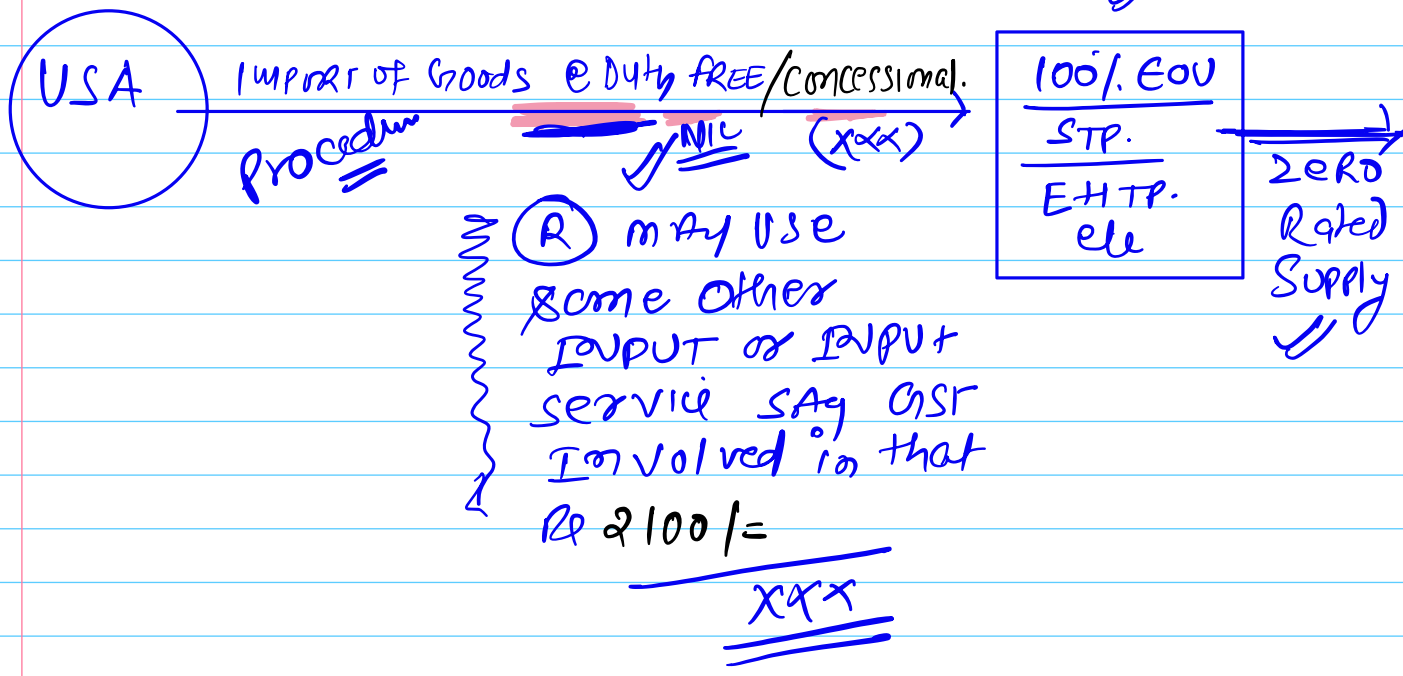 USA
Import of Goods @ Duty FREE/Concessional.
Procedure
NIL
(xxx)
100% EOU
STP.
EHTP.
etc
Zero
Rated
Supply
R may use
some other
INPUT or INPUT
service say GST
Involved in that
Rs 2100/=
xxx